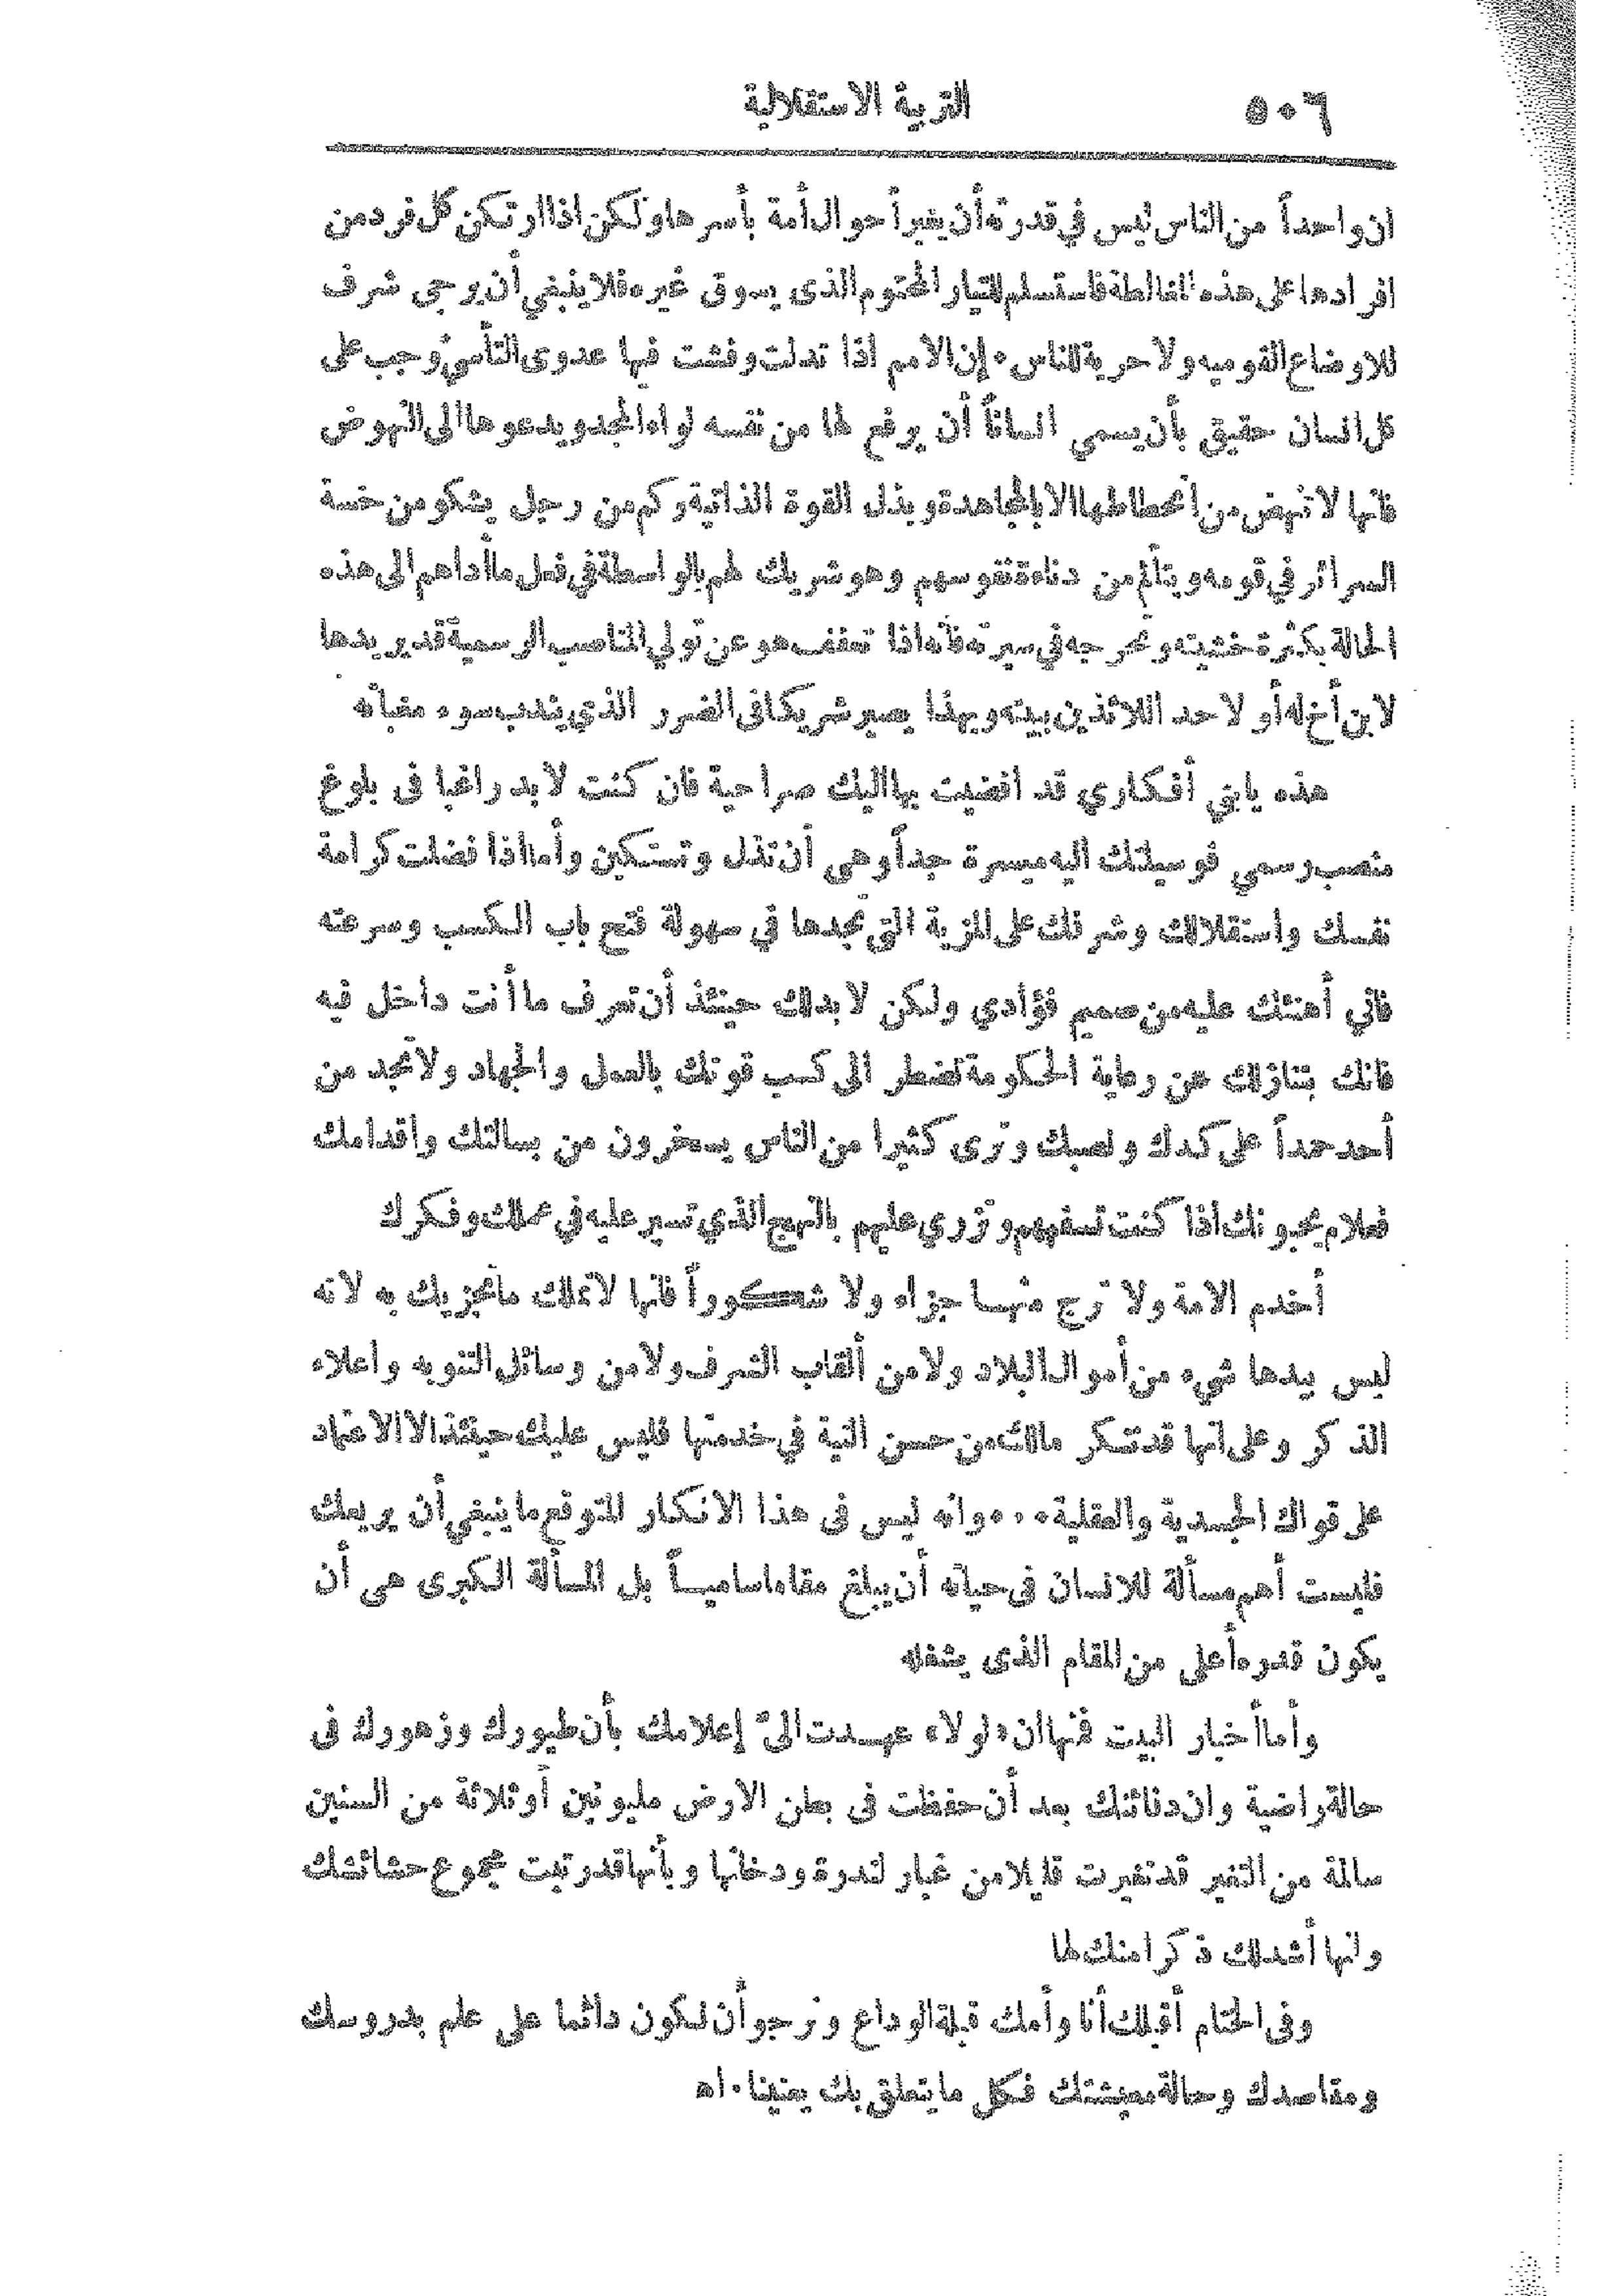 ٥٠٦
التربية الاستقلالية
ان واحداً من الناس ليس في قدرته أن يغير أحوال أمة بأسرها ولكن اذا ارتكن كل فرد من
افرادها على هذه المغالطة فاستسلم للتيار المحتوم الذى يسوق غيره فلا ينبغي أن يرجى شرف
للاوضاع القوميه ولا حرية للناس ٠ إن الامم اذا تدلت وفشت فيها عدوى التأسي وجب على
كل انسان حقيق بأن يسمى انساناً أن يرفع لها من نفسه لواء المجد ويدعوها الى النهوض
فانها لا تنهض من انحطاطها الا بالمجاهدة وبذل القوة الذاتية وكم من رجل يشكو من خسة
السرائر في قومه ويتألم من دناءة نفوسهم وهو شريك لهم بالواسطة في فعل ما أداهم الى هذه
الحالة بكثرة خشيته وتحرجه في سيرته فانه اذا تعفف هو عن تولي المناصب الرسمية قد يريدها
لابن أخ له أو لاحد اللائذين ببيته وبهذا يصير شريكا فى الضرر الذي يندب سوء مغباته
هذه يابني أفكاري قد افضيت بها اليك صراحية فان كنت لا بد راغبا فى بلوغ
منصب رسمي فوسيلتك اليه ميسرة جداً وهى أن تذل وتستكين وأما اذا فضلت كرامة
نفسك واستقلالك وشرفك على المزية التي تجدها في سهولة فتح باب الكسب وسرعته
فاني أهنئك عليه من صميم فؤادي ولكن لا بد لك حينئذ أن تعرف ما أنت داخل فيه
فانك بتنازلك عن رعاية الحكومة تضطر الى كسب قوتك بالعمل والجهاد ولا تجد من
أحد حمداً على كدك ونصبك وترى كثيرا من الناس يسخرون من بسالتك واقدامك
فعلام يحبونك اذا كنت تسفههم وتزري عليهم بالنهج الذي تسير عليه في عملك وفكرك
أخدم الامة ولا ترج منها جزاء ولا شكوراً فانها لا تملك ما تجزيك به لانه
ليس بيدها شيء من أموال البلاد ولا من ألقاب الشرف ولا من وسائل التنويه واعلاء
الذكر وعلى انها قد تنكر مالك من حسن النية في خدمتها فليس عليك حينئذ الا الاعتماد
على قواك الجسدية والعقلية ٠٠٠ وانه ليس فى هذا الانكار المتوقع ما ينبغي أن يريعك
فليست أهم مسألة للانسان فى حياته أن يبلغ مقاما ساميـاً بل المسألة الكبرى هى أن
يكون قدره أعلى من المقام الذى يشغله
وأما أخبار البيت فمنها ان «لولا» عهـدت اليّ إعلامك بأن طيورك وزهورك فى
حالة راضية وان دفائنك بعد أن حفظت فى بطن الارض مليونين أو ثلاثة من السنين
سالمة من التغير قد تغيرت قليلا من غبار لندرة ودخانها وبأنها قد رتبت مجموع حشائشك
وانها أشد لك ذكرا منك لها
وفى الختام أقبلك أنا وأمك قبلة الوداع ونرجو أن نكون دائما على علم بدروسك
ومقاصدك وحالة معيشتك فكل ما يتعلق بك يعنينا ٠ اه